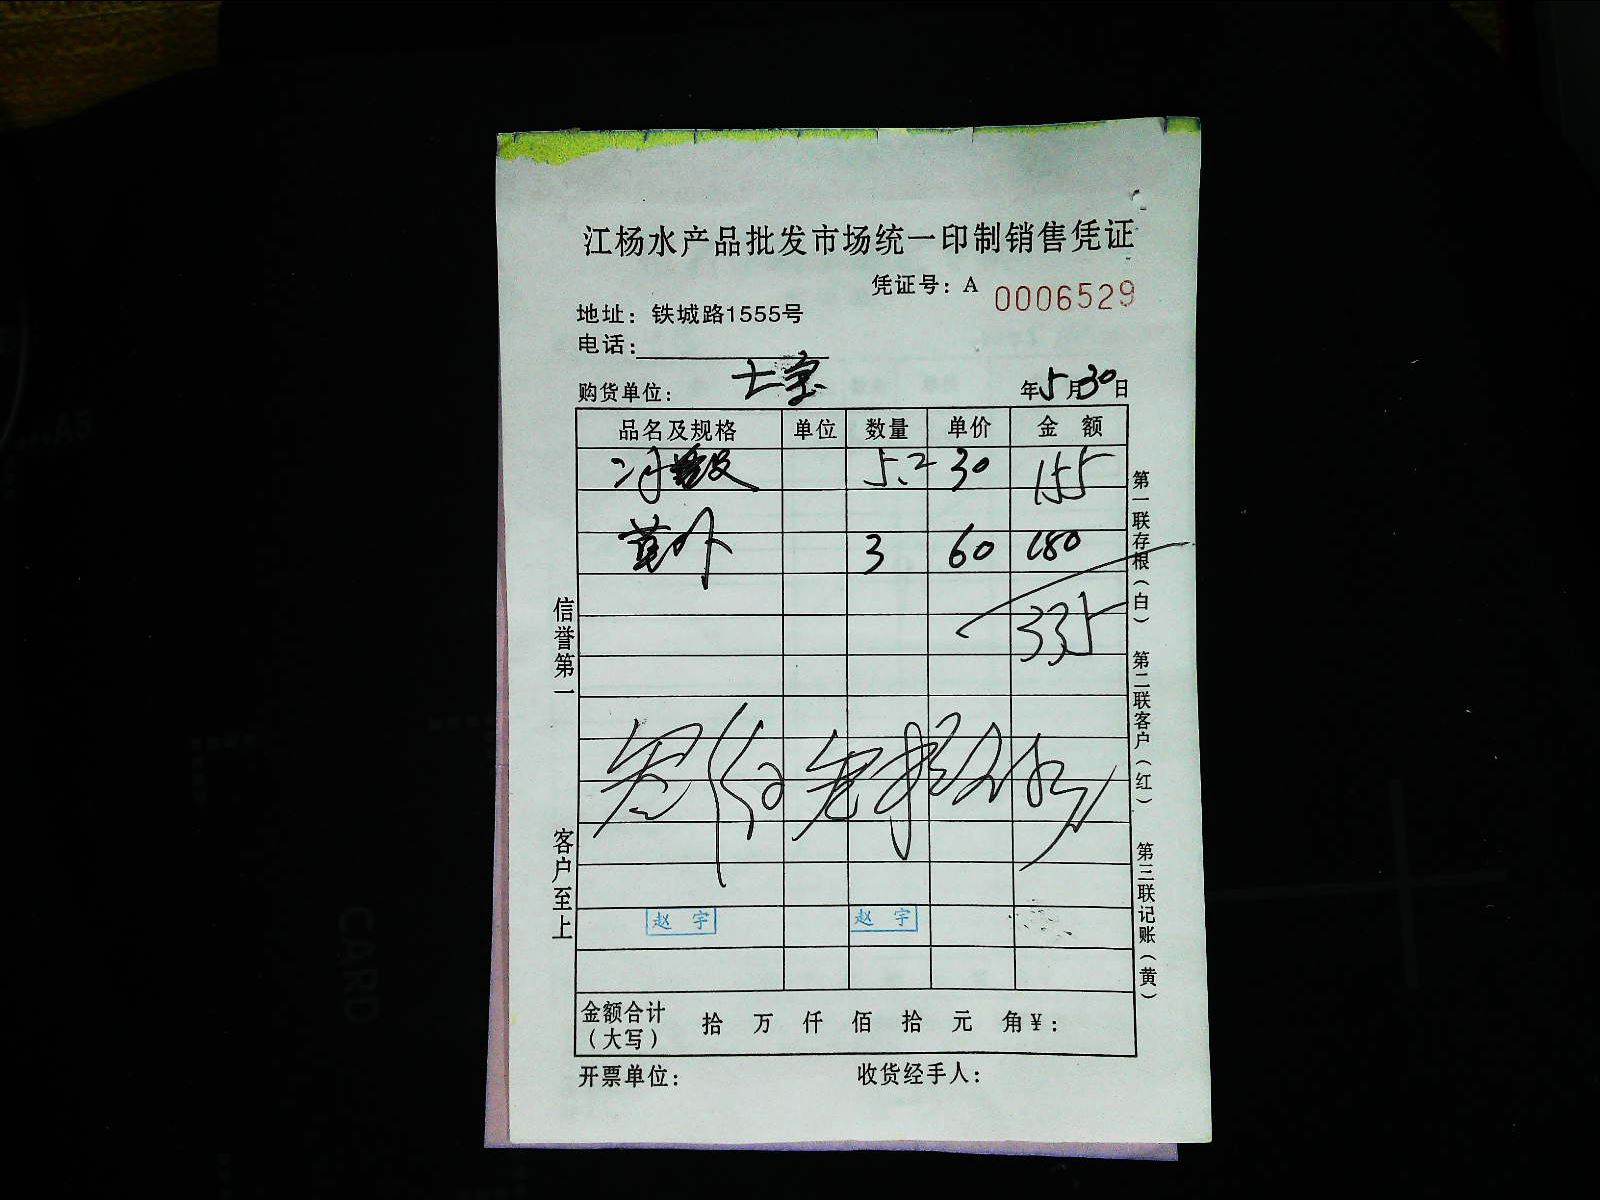 江杨水产品批发市场统一印制销售凭证
凭证号：A 0006529
地址：铁城路1555号
电话：
购货单位：七宝 年5月30日
品名及规格 单位 数量 单价 金额
5.2 30 155
3 60 180
335
赵宇 赵宇
金额合计（大写） 拾 万 仟 佰 拾 元 角 ¥：
开票单位： 收货经手人：
信誉第一
客户至上
第一联存根（白） 第二联客户（红） 第三联记账（黄）